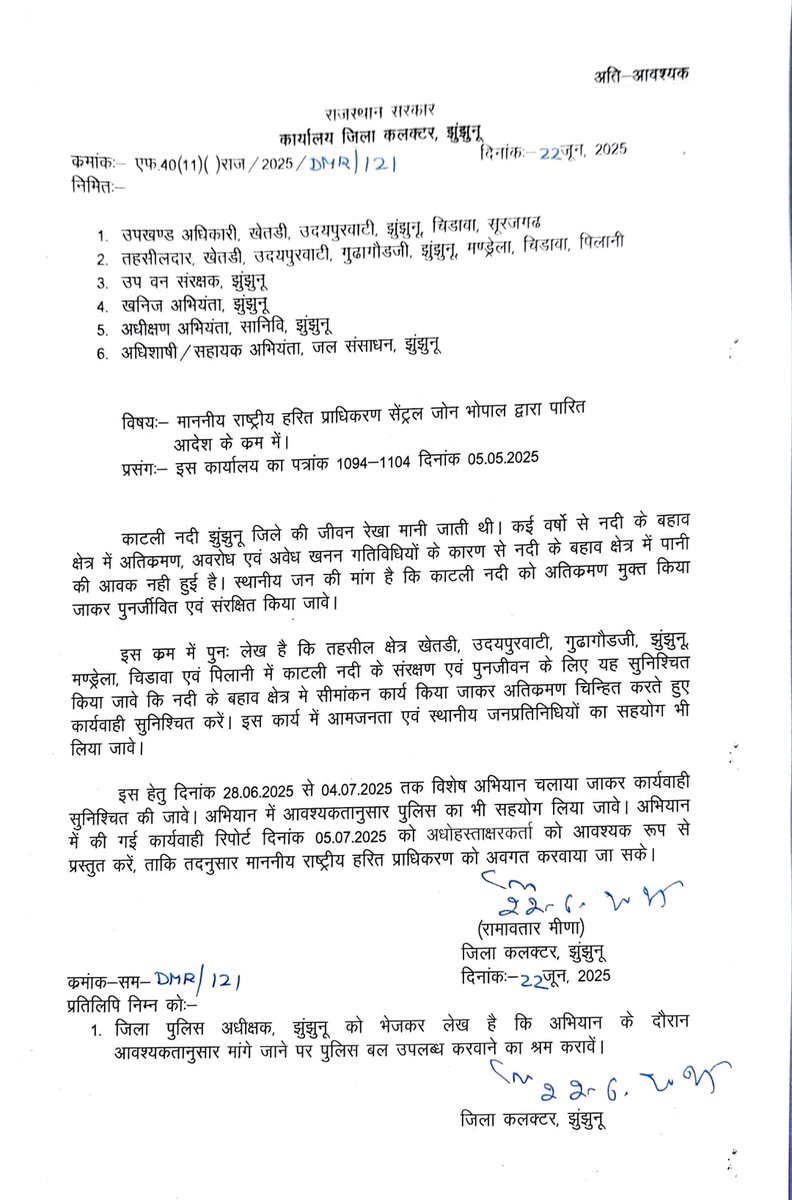 अति–आवश्यक
राजस्थान सरकार
कार्यालय जिला कलक्टर, झुंझुनू
कमांकः– एफ.40(11)( )राज / 2025 / DMR/121
दिनांकः–22जून, 2025
निमितः–
1. उपखण्ड अधिकारी, खेतडी, उदयपुरवाटी, झुंझुनू, चिडावा, सूरजगढ
2. तहसीलदार, खेतडी, उदयपुरवाटी, गुढागौडजी, झुंझुनू, मण्ड्रेला, चिडावा, पिलानी
3. उप वन संरक्षक, झुंझुनू
4. खनिज अभियंता, झुंझुनू
5. अधीक्षण अभियंता, सानिवि, झुंझुनू
6. अधिशाषी / सहायक अभियंता, जल संसाधन, झुंझुनू
विषयः– माननीय राष्ट्रीय हरित प्राधिकरण सेंट्रल जोन भोपाल द्वारा पारित
आदेश के कम में।
प्रसंगः– इस कार्यालय का पत्रांक 1094–1104 दिनांक 05.05.2025
काटली नदी झुंझुनू जिले की जीवन रेखा मानी जाती थी। कई वर्षो से नदी के बहाव
क्षेत्र में अतिकमण, अवरोध एवं अवेध खनन गतिविधियों के कारण से नदी के बहाव क्षेत्र में पानी
की आवक नही हुई है। स्थानीय जन की मांग है कि काटली नदी को अतिकमण मुक्त किया
जाकर पुनर्जीवित एवं संरक्षित किया जावे।
इस कम में पुनः लेख है कि तहसील क्षेत्र खेतडी, उदयपुरवाटी, गुढागौडजी, झुंझुनू,
मण्ड्रेला, चिडावा एवं पिलानी में काटली नदी के संरक्षण एवं पुनजीवन के लिए यह सुनिश्चित
किया जावे कि नदी के बहाव क्षेत्र मे सीमांकन कार्य किया जाकर अतिकमण चिन्हित करते हुए
कार्यवाही सुनिश्चित करें। इस कार्य में आमजनता एवं स्थानीय जनप्रतिनिधियों का सहयोग भी
लिया जावे।
इस हेतु दिनांक 28.06.2025 से 04.07.2025 तक विशेष अभियान चलाया जाकर कार्यवाही
सुनिश्चित की जावे। अभियान में आवश्यकतानुसार पुलिस का भी सहयोग लिया जावे। अभियान
में की गई कार्यवाही रिपोर्ट दिनांक 05.07.2025 को अधोहस्ताक्षरकर्ता को आवश्यक रूप से
प्रस्तुत करें, ताकि तदनुसार माननीय राष्ट्रीय हरित प्राधिकरण को अवगत करवाया जा सके।
(रामावतार मीणा)
जिला कलक्टर, झुंझुनू
दिनांकः–22जून, 2025
कमांक–सम– DMR/121
प्रतिलिपि निम्न कोः–
1. जिला पुलिस अधीक्षक, झुंझुनू को भेजकर लेख है कि अभियान के दौरान
आवश्यकतानुसार मांगे जाने पर पुलिस बल उपलब्ध करवाने का श्रम करावें।
जिला कलक्टर, झुंझुनू